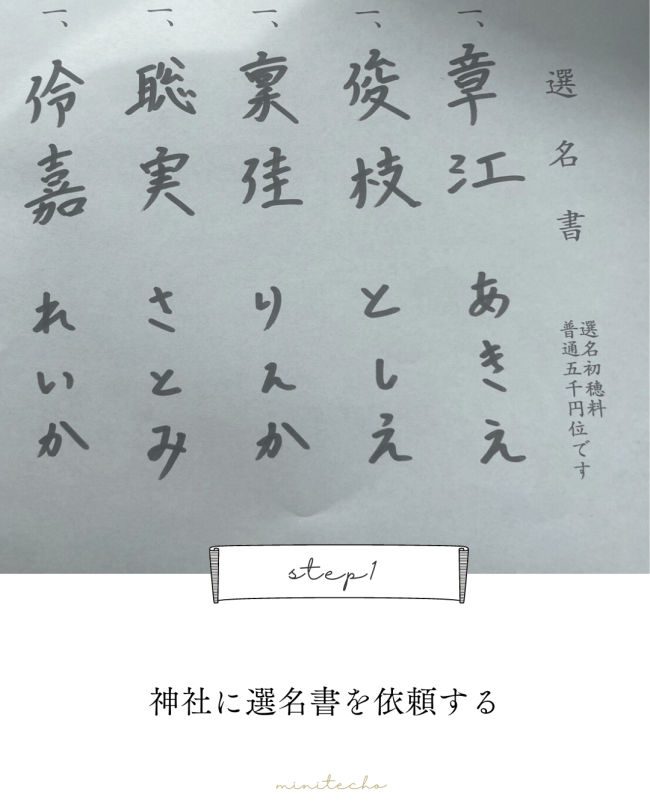 選名書
選名初穂料
普通五千円位です
一、章江 あきえ
一、俊枝 としえ
一、稟佳 りんか
一、聡実 さとみ
一、伶嘉 れいか
step1
神社に選名書を依頼する
minitecho